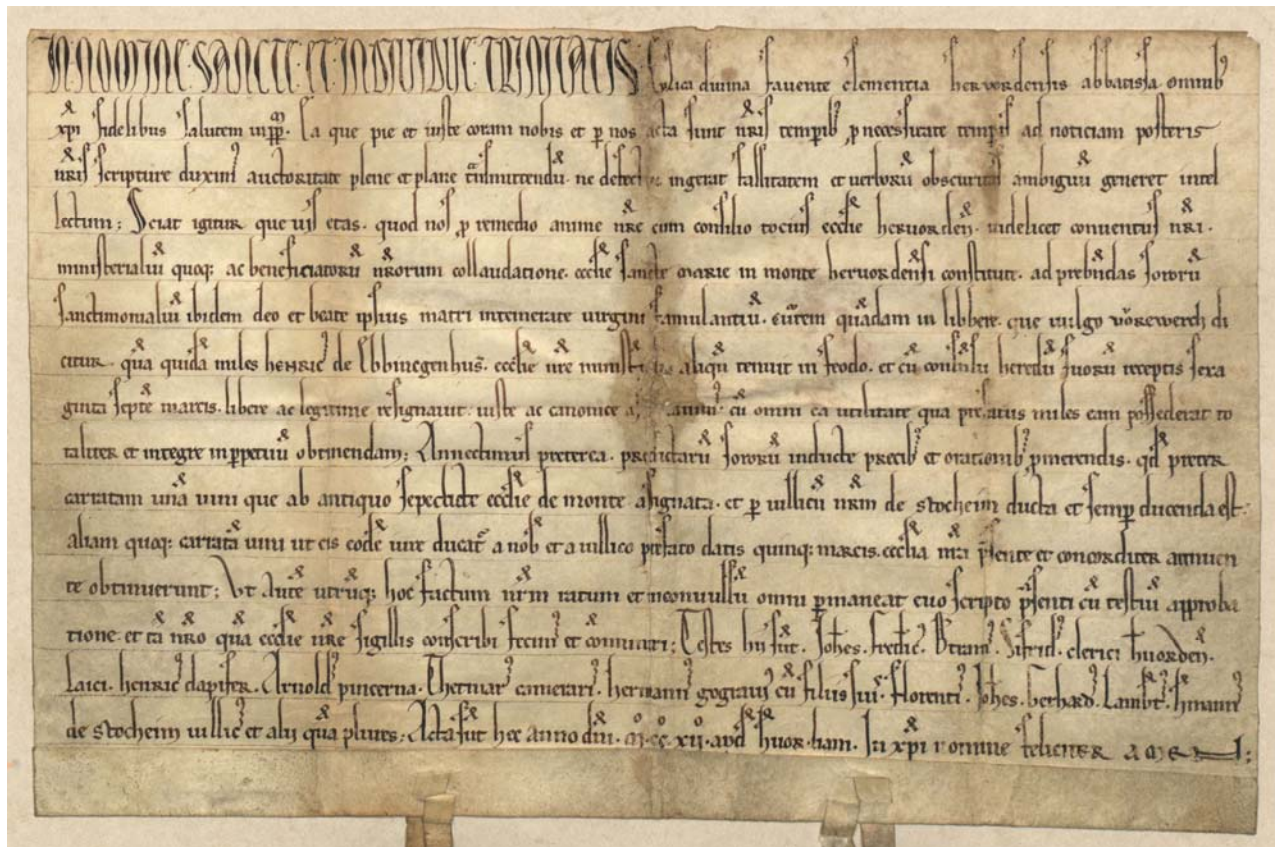 IN NOMINE SANCTE ET INDIVIDUE TRINITATIS divina favente clementia hervordensis abbatissa omnib
xpi fidelibus salutem inpp. Ea que pie et iuste coram nobis et p nos acta sunt nris temporib p necessitate tempis ad noticiam posteris
nris scripture duxim auctoritate plene et plane tnsmittendu. ne defect ingerat fallitatem et verboru obscuritas ambiguu generet intel
lectum; Sciat igitur que vis etas. quod nos p remedio anime nre cum consilio tocius ecclie hervorden. videlicet conventus nri.
ministerialiu quoq; ac beneficiatoru nrorum collaudatione. ecclie sancte marie in monte hervordensi constitute. ad prebendas sororu
sanctimonialiu ibidem deo et beate ipsius matri intemerate virgini famulantiu. quadam in libbere. que vulgo vorewerch di
citur. qua quida miles henric de Ebbinegenhus. ecclie nre tenuit in feodo. et cu consensu heredu suoru receptis sexa
ginta septe marcis. libere ac legitime resignavit. iuste ac canonice cu omni ea utilitate qua prefatus miles eam possederat to
taliter et integre inppetuu obtinendam; Annectimus preterea. predictaru sororu inducte precib et orationib pmerendis. qd preter
carratam una vini que ab antiquo sepedicte ecclie de monte assignata. et p villicu nrm de stocheim ducta et semp ducenda est.
aliam quoq; carrata vini ut eis eode iure ducat a nob et a villico prefato datis quinq; marcis. ecclesia nra psente et concorditer annuen
te obtinuerunt; Ut aute utruq; hoc factum nrm ratum et inconvulsu omni pmaneat evo scripto psenti cu testiu approba
tione. et ta nro qua ecclie nre sigillis conscribi fecim et comuniri; Testes hii sut. Johes. fredic. Sifrid. clerici hvorden.
Laici. henric dapifer. Arnold pincerna. Thetmar camerari. hermann gograui cu filiis sui. florenti. Johes. Gerhard. Lambt.
de stocheim villic et alii qua plures; Acta sut hec anno dni. M. CC. XII. apd hvordiam. In xpi nomine feliciter AMEN;